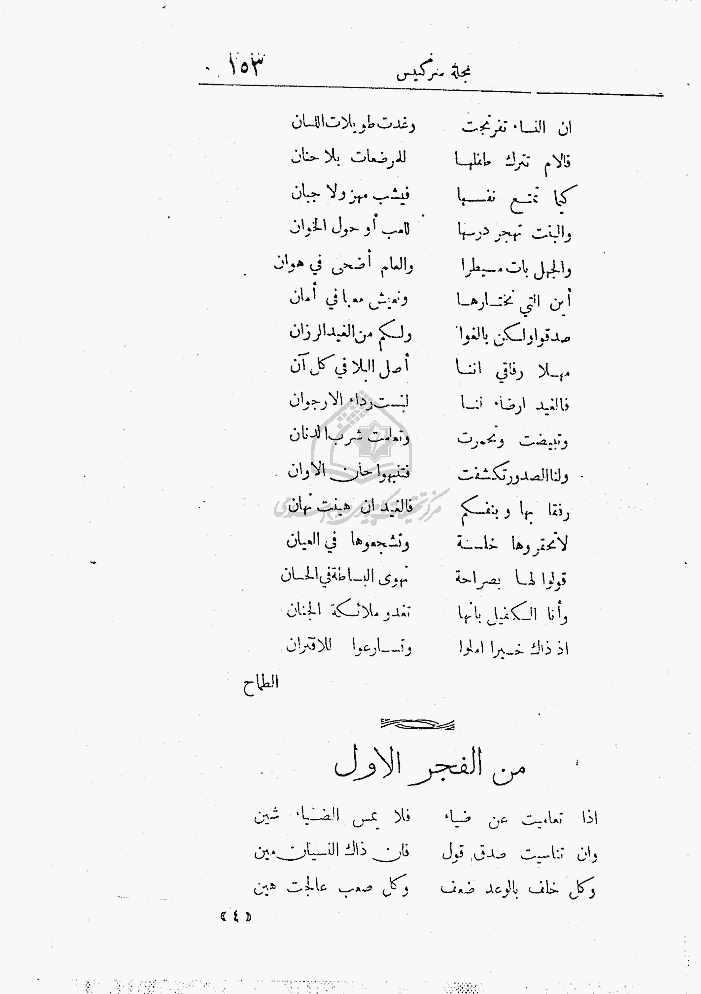 مجلة سركيس ١٥٣
ان النساء تفرنجت وغدت طويلات اللسان
فالام تترك طفلها للمرضعات بلا حنان
كيما تمتع نفسها فيشب مهزولا جبان
والبنت تهجر درسها للعب أو حول الخوان
والجهل بات مسيطرا والعلم أضحى في هوان
أين التي نختارها ونعيش معها في أمان
صدقوا ولكن بالغوا ولكم من الغيد الرزان
مهلا رفاقي اننا أصل البلا في كل آن
فالغيد ارضاء لنا لبست رداء الارجوان
وتبيضت وتحمرت وتعلمت شرب الدنان
ولنا الصدور تكشفت فتنبهوا حان الاوان
رفقا بها وبنفسكم فالغيد ان هينت تهان
لا تحقروها خلسة وتشجعوها في العيان
قولوا لها بصراحة نهوى البساطة في الحسان
وأنا الكفيل بأنها تغدو ملائكة الجنان
اذ ذاك خيرا املوا وتسارعوا للاقتران
الطماح
من الفجر الاول
اذا تعاميت عن ضياء فلا يمس الضياء شين
وان تناسيت صدق قول فان ذاك النسيان مين
وكل خلف بالوعد ضعف وكل صعب عالجت هين
«٤»